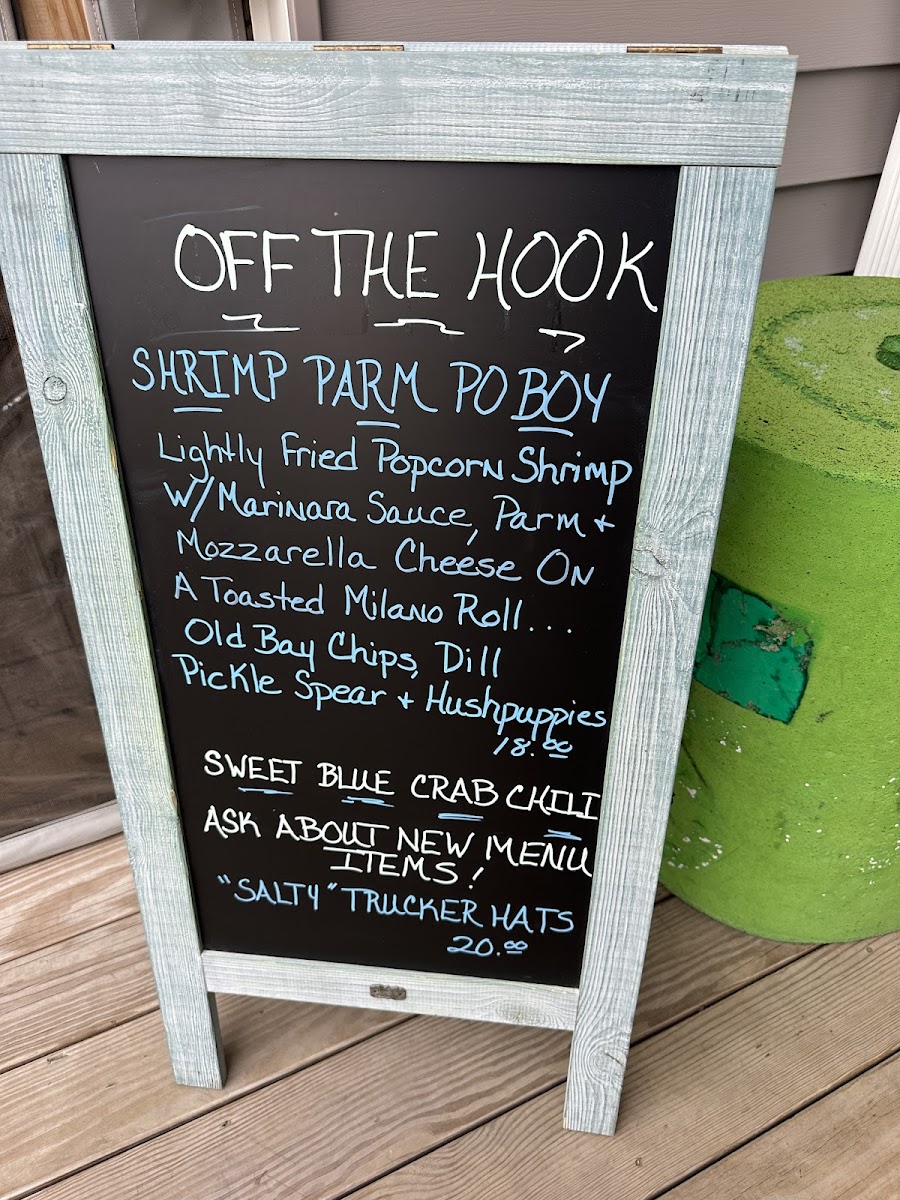 OFF THE HOOK
SHRIMP PARM PO BOY
Lightly Fried Popcorn Shrimp
W/ Marinara Sauce, Parm +
Mozzarella Cheese On
A Toasted Milano Roll...
Old Bay Chips, Dill
Pickle Spear + Hushpuppies
18.00
SWEET BLUE CRAB CHILI
ASK ABOUT NEW MENU
ITEMS!
"SALTY" TRUCKER HATS
20.00